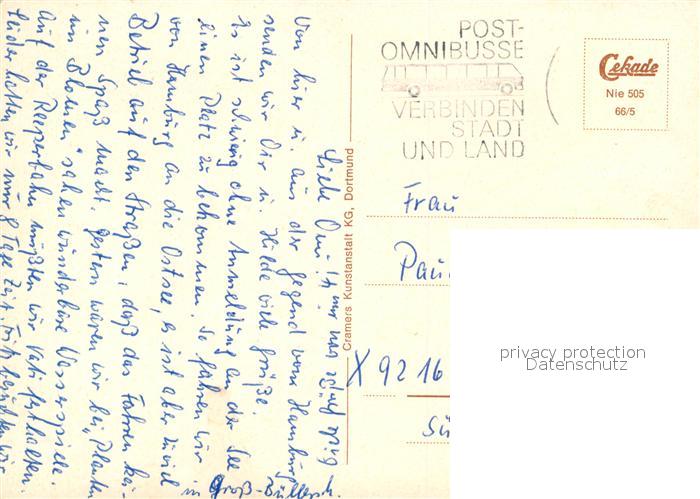 Liebe Omi!
Von hier u. aus der Gegend vom Hamburg
senden wir Dir u. Hilde viele Grüße.
Es ist schwierig ohne Anmeldung an der See
einen Platz zu bekommen. So fahren wir
von Hamburg an die Ostsee, es ist aber zuviel
Betrieb auf den Straßen, daß das Fahren kei-
nen Spaß macht. Gestern waren wir bei „Planten
un Blomen" sahen wunderbare Wasserspiele.
Auf der Reeperbahn mußten wir Vati festhalten.
Leider hatten wir nur 8 Tage Zeit.
in Groß-
Cramers Kunstanstalt KG, Dortmund
POST-
OMNIBUSSE
VERBINDEN
STADT
UND LAND
Cekade
Nie 505
66/5
Frau
X 9216
privacy protection
Datenschutz